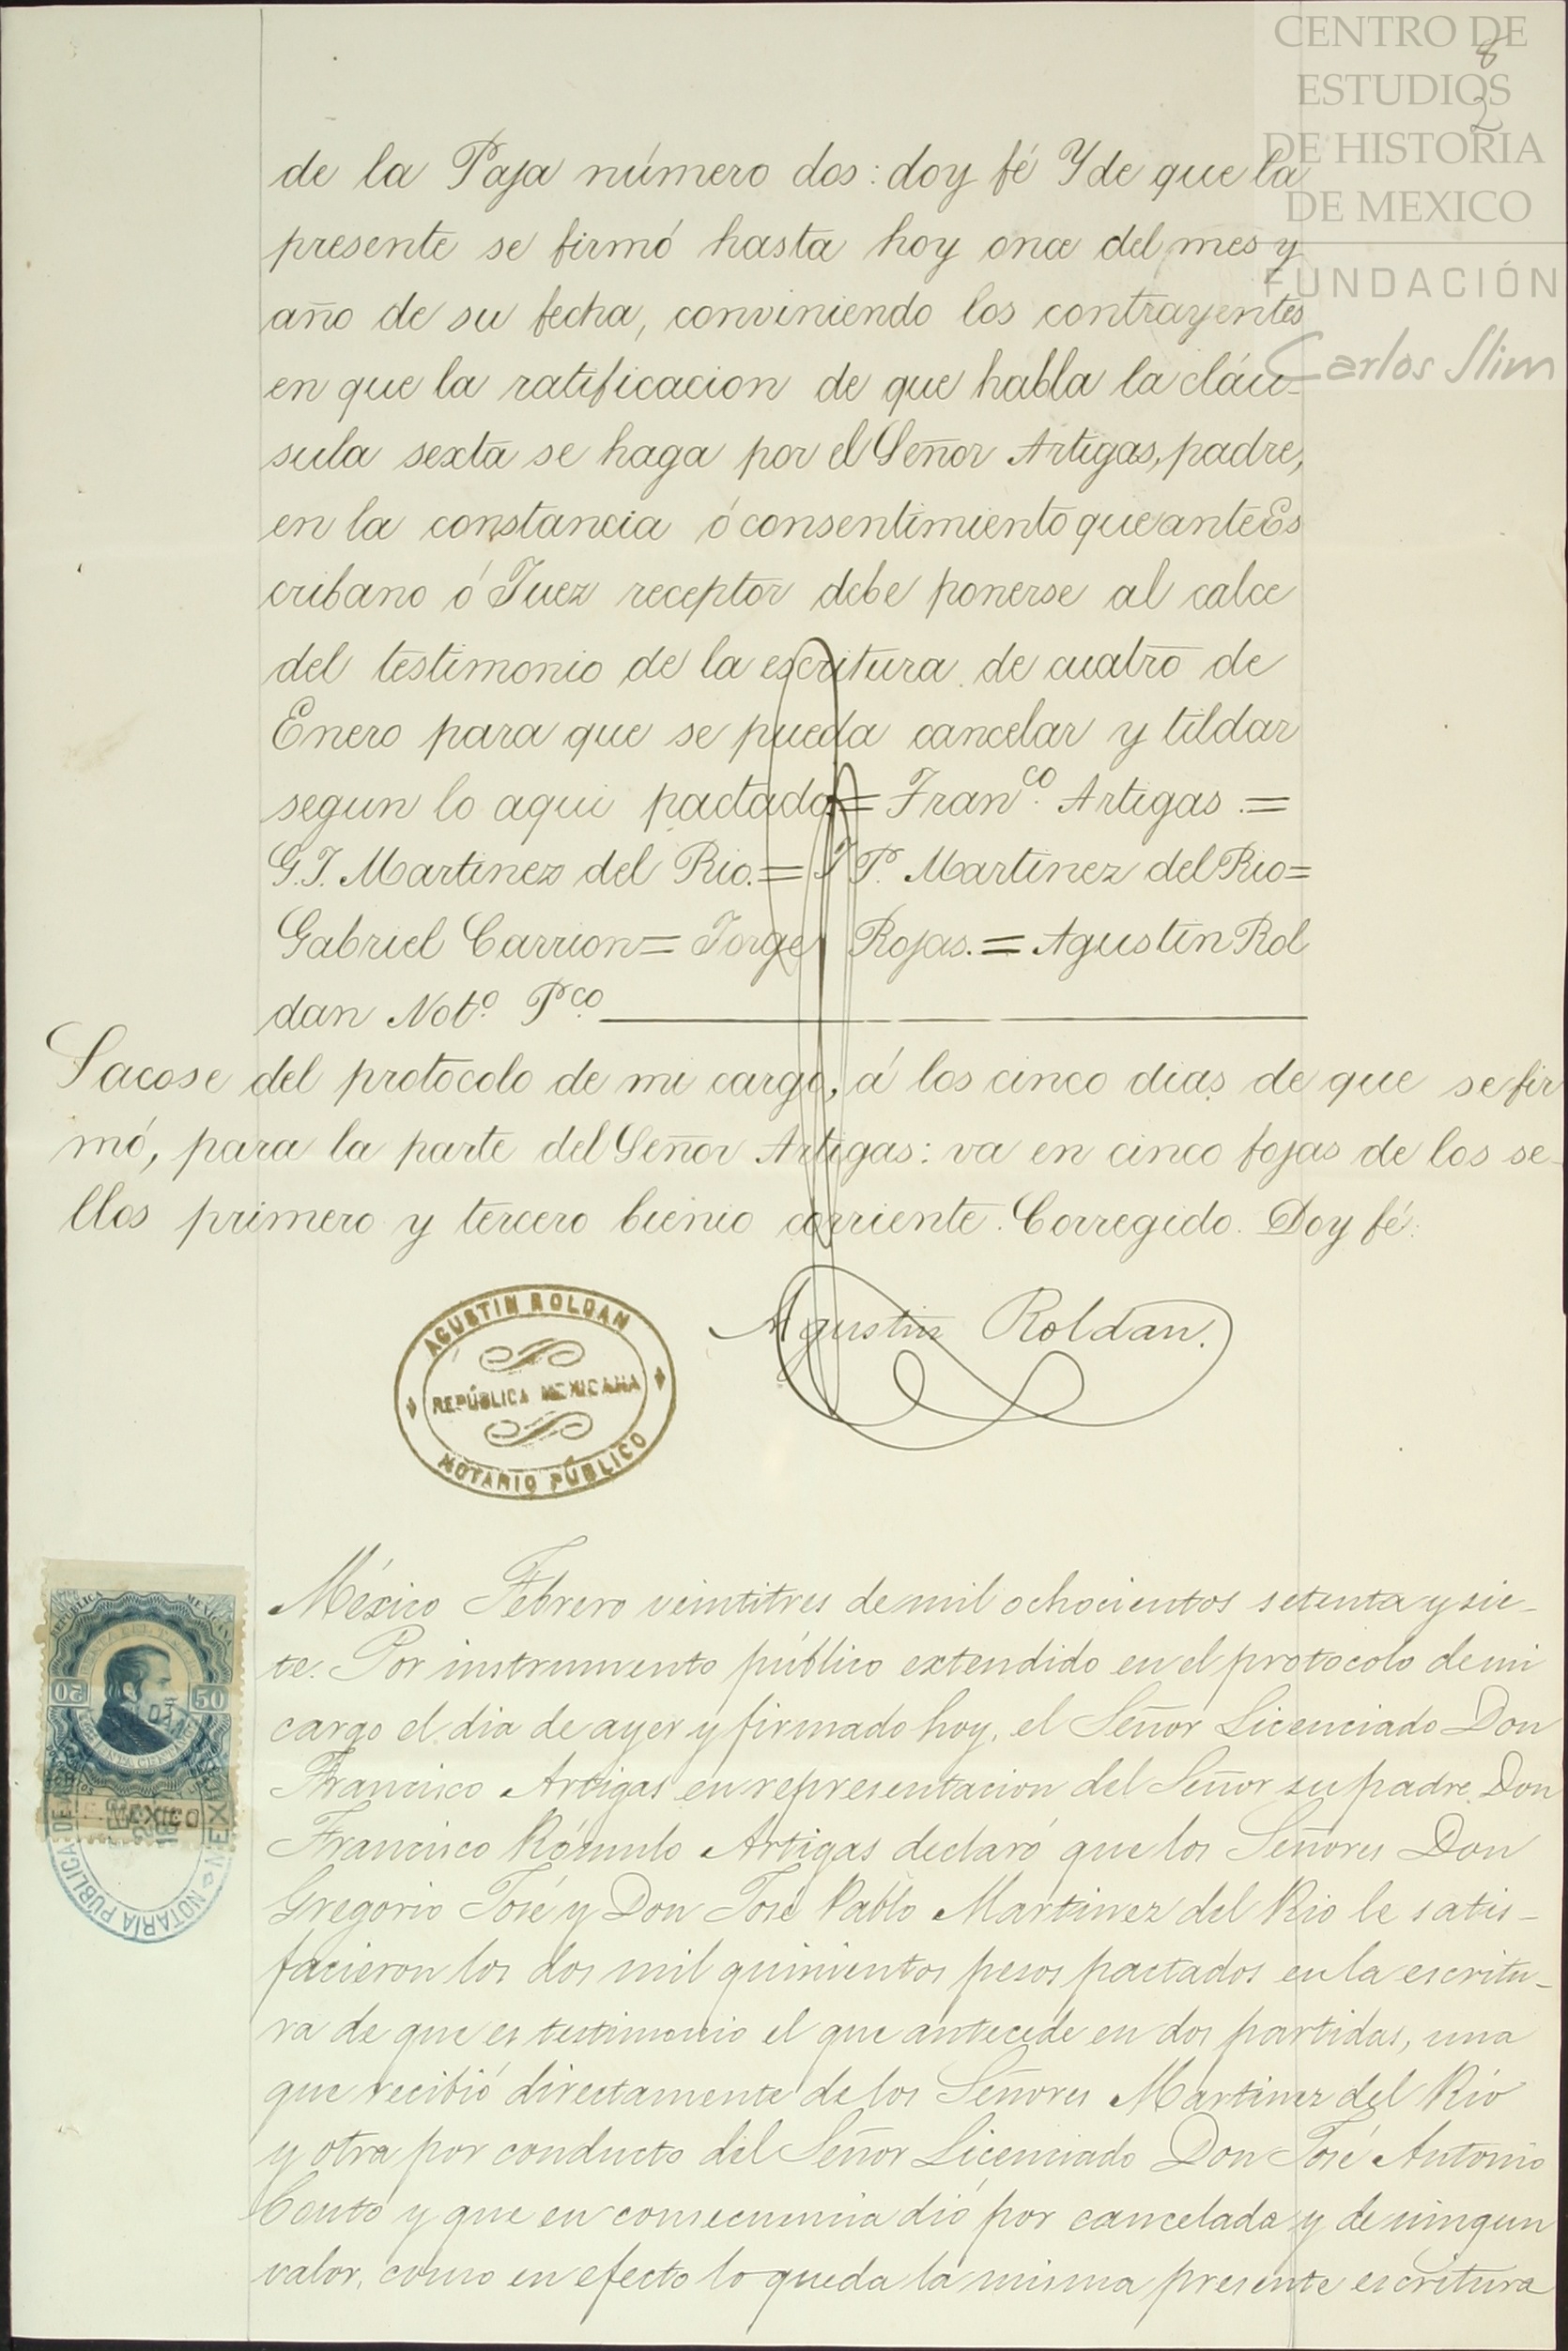 CENTRO DE
ESTUDIOS
DE HISTORIA
DE MEXICO
FUNDACIÓN
Carlos Slim
8
2
de la Paja número dos: doy fé Y de que la
presente se firmó hasta hoy once del mes y
año de su fecha, conviniendo los contrayentes
en que la ratificacion de que habla la cláu-
sula sexta se haga por el Señor Artigas, padre,
en la constancia ó consentimiento que ante Es
cribano ó Juez receptor debe ponerse al calce
del testimonio de la escritura de cuatro de
Enero para que se pueda cancelar y tildar
segun lo aqui pactado = Fran.co Artigas =
G. J. Martinez del Rio. = J P. Martinez del Rio=
Gabriel Carrion= Jorge Rojas. = Agustin Rol
dan Not.o P.co
Sacose del protocolo de mi cargo, á los cinco dias de que se fir
mó, para la parte del Señor Artigas: va en cinco fojas de los se-
llos primero y tercero bienio corriente. Corregido. Doy fé.
AGUSTIN ROLDAN
REPÚBLICA MEXICANA
NOTARIO PÚBLICO
Agustin Roldan.
REPUBLICA MEXICANA
50 50
CINCUENTA CENTAVOS
MEXICO
NOTARIA PUBLICA DE MEXICO
México Febrero veintitres de mil ochocientos setenta y sie-
te. Por instrumento público extendido en el protocolo de mi
cargo el dia de ayer y firmado hoy, el Señor Licenciado Don
Francisco Artigas en representacion del Señor su padre Don
Francisco Rómulo Artigas declaró que los Señores Don
Gregorio José y Don José Pablo Martinez del Rio le satis-
facieron los dos mil quinientos pesos pactados en la escritu-
ra de que es testimonio el que antecede en dos partidas, una
que recibió directamente de los Señores Martinez del Rio
y otra por conducto del Señor Licenciado Don José Antonio
Couto y que en consecuencia dió por cancelada y de ningun
valor, como en efecto lo queda la misma presente escritura